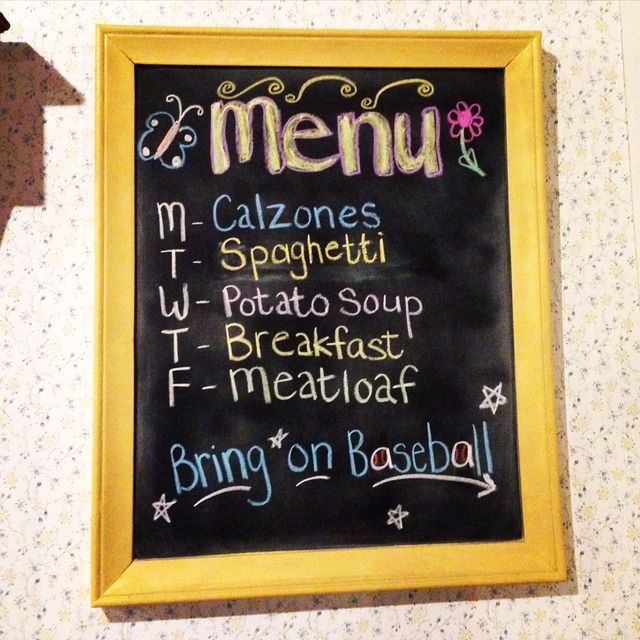 Menu
M - Calzones
T - Spaghetti
W - Potato Soup
T - Breakfast
F - Meatloaf
Bring on Baseball